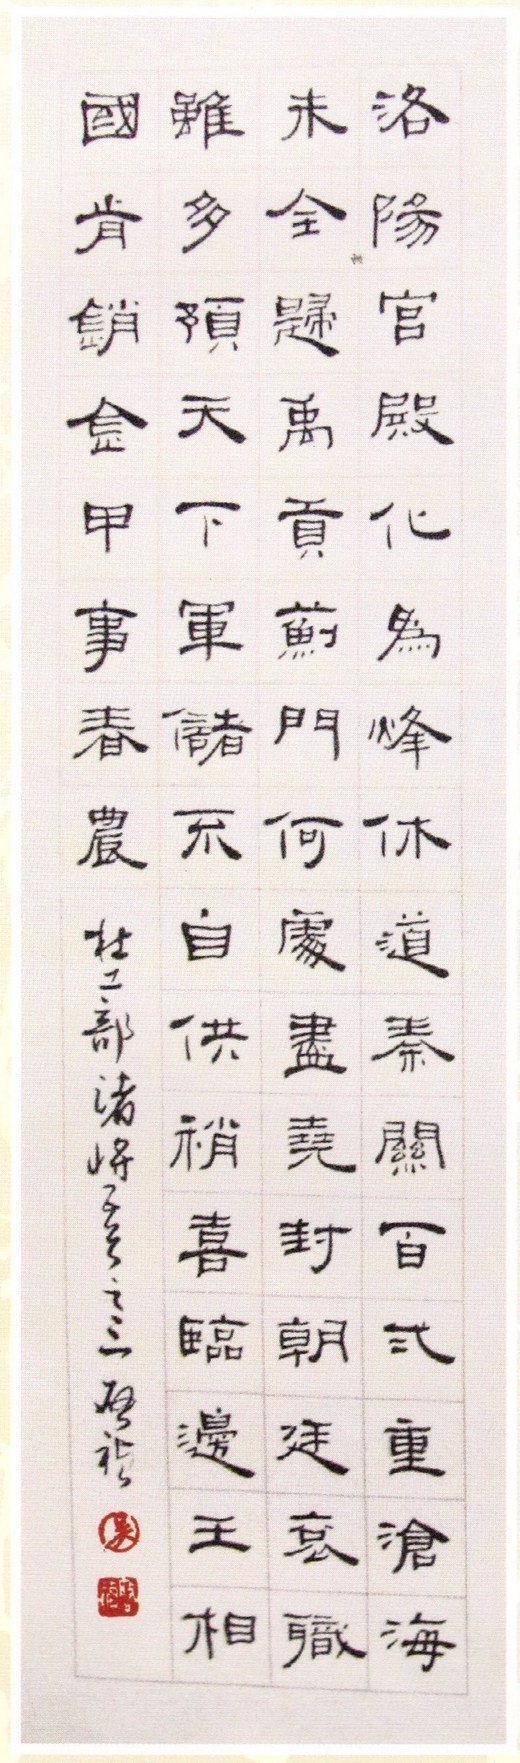 洛陽宮殿化為烽休道秦關百弍重滄海
未全歸禹貢薊門何處盡堯封朝廷袞職
雖多預天下軍儲不自供稍喜臨邊王相
國肯銷金甲事春農
杜工部諸將五首之三